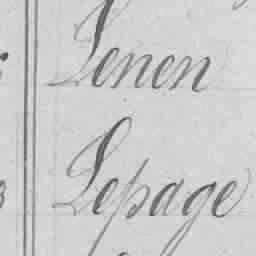 Lenen
Lepage